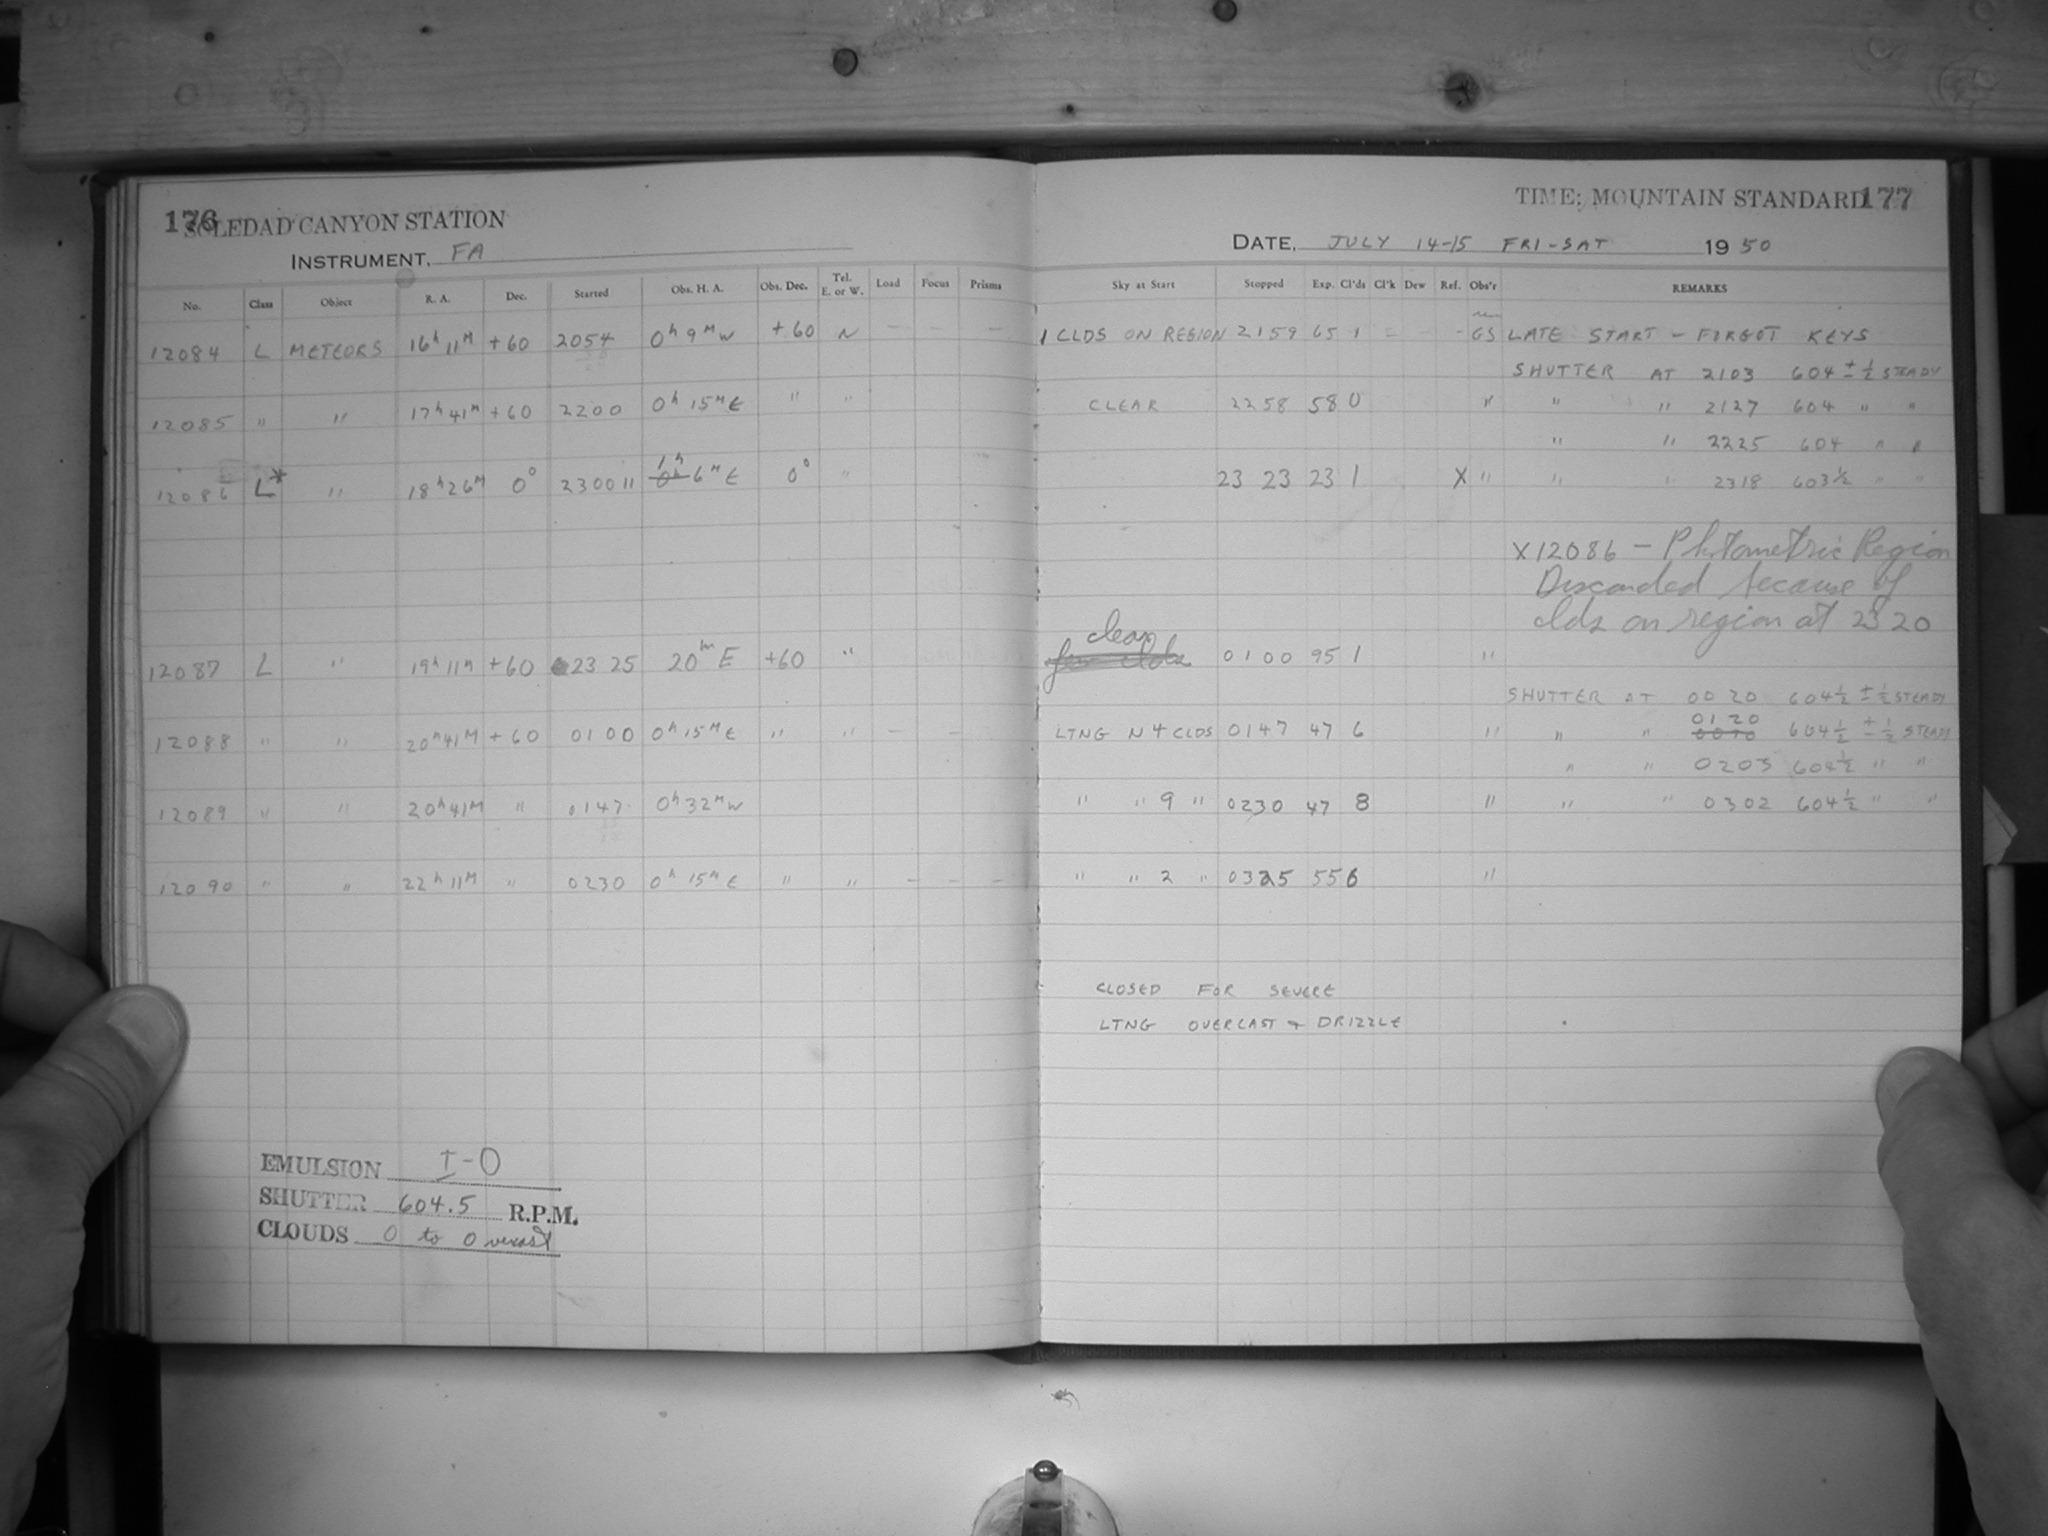 176 SOLEDAD CANYON STATION
INSTRUMENT. FA
No. Class Object R. A. Dec. Started Obs. H. A. Obs. Dec. Tel. E. or W. Load Focus Prisms
12084 L METEORS 16h 11M +60 2054 0h 9M W +60 N - - -
12085 " " 17h 41M +60 2200 0h 15M E " "
12086 L* " 18h 26M 0° 2300 11 0h 1h 6M E 0° "
12087 L " 19h 11M +60 23 25 20m E +60 "
12088 " " 20h 41M +60 0100 0h 15M E " " - -
12089 " " 20h 41M " 0147 0h 32M W
12090 " " 22h 11M " 0230 0h 15M E " " - - -
EMULSION I-O
SHUTTER 604.5 R.P.M.
CLOUDS 0 to Overcast
TIME: MOUNTAIN STANDARD 177
DATE. JULY 14-15 FRI-SAT 1950
Sky at Start Stopped Exp. Cl'ds Cl'k Dew Ref. Obs'r REMARKS
1 CLDS ON REGION 2159 65 1 - - - GS LATE START - FORGOT KEYS
SHUTTER AT 2103 604 ± 1/2 STEADY
CLEAR 2258 58 0 " " " 2127 604 " "
" " 2225 604 " "
23 23 23 1 X " " " 2318 603 1/2 " "
X12086 - Photometric Region
Discarded because of
clds on region at 2320
clear
few clds 0100 95 1 "
SHUTTER AT 00 20 604 1/2 ± 1/2 STEADY
0120
LTNG N 4 CLDS 0147 47 6 " " " 0020 604 1/2 ± 1/2 STEADY
" " 0203 604 1/2 " "
" " 9 " 0230 47 8 " " " 0302 604 1/2 " "
" " 2 " 0325 55 6 "
CLOSED FOR SEVERE
LTNG OVERCAST + DRIZZLE